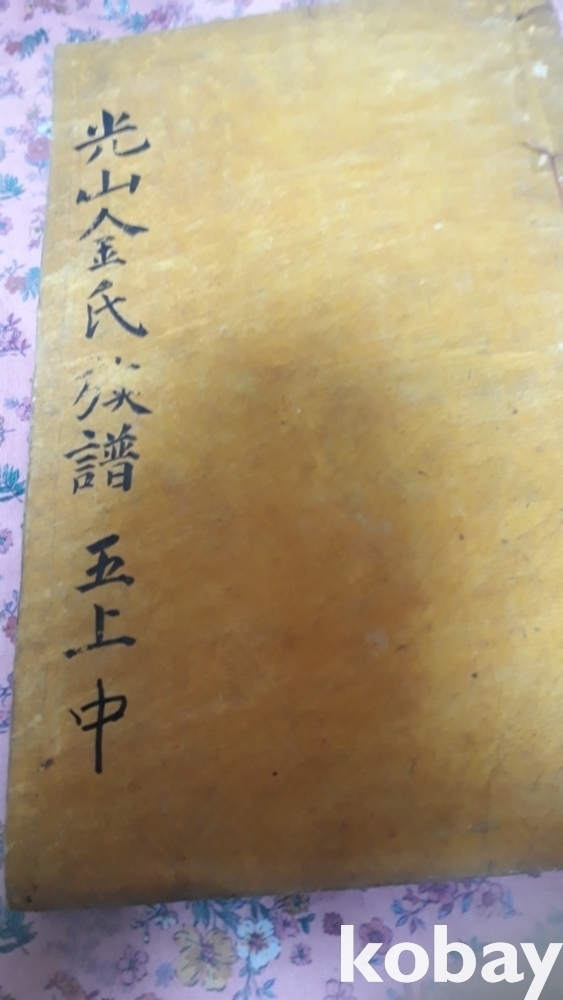 光山金氏族譜 五上中
kobay